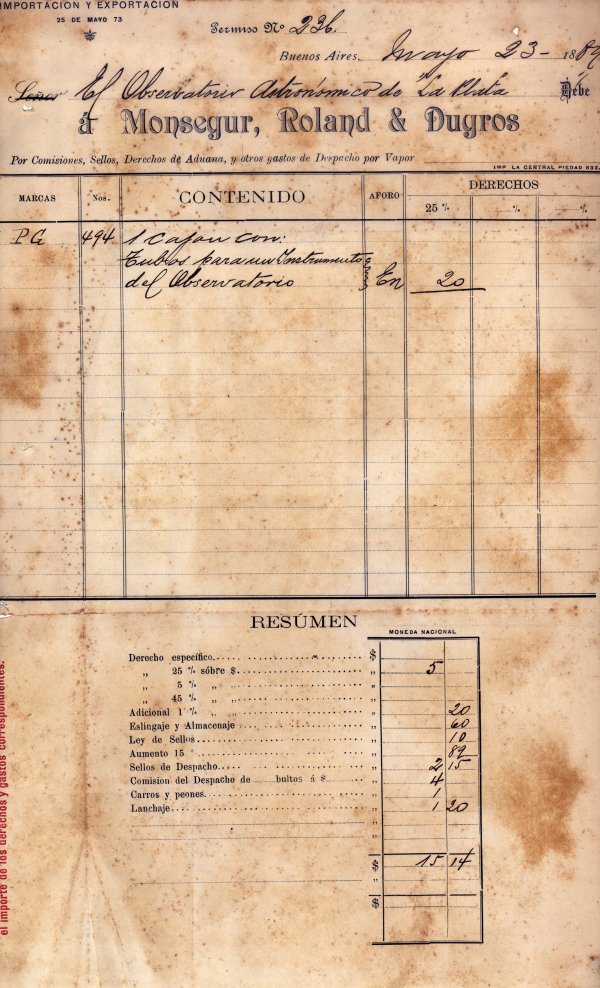 IMPORTACION Y EXPORTACION
25 DE MAYO 73
Permiso Nº 236
Buenos Aires, Mayo 23 - 1889
Señor El Observatorio Astronómico de "La Plata" Debe
á Monsegur, Roland & Dugros
Por Comisiones, Sellos, Derechos de Aduana, y otros gastos de Despacho por Vapor
IMP LA CENTRAL PIEDAD 832
MARCAS Nos. CONTENIDO AFORO DERECHOS
25 % % %
PG 494 1 Cajon con:
Tubos para un Instrumento
del Observatorio En 20
RESÚMEN
MONEDA NACIONAL
Derecho específico $
„ 25 % sóbre $ „ 5
„ 5 % „ „ „
„ 45 % „ „ „
Adicional 1 % „ „ „ 20
Eslingaje y Almacenaje „ 60
Ley de Sellos „ 10
Aumento 15 „ 89
Sellos de Despacho „ 2 15
Comision del Despacho de bultos á $ „ 4
Carros y peones „ 1
Lanchaje „ 1 20
„
„
$ 15 14
„
$
el importe de los derechos y gastos correspondientes.